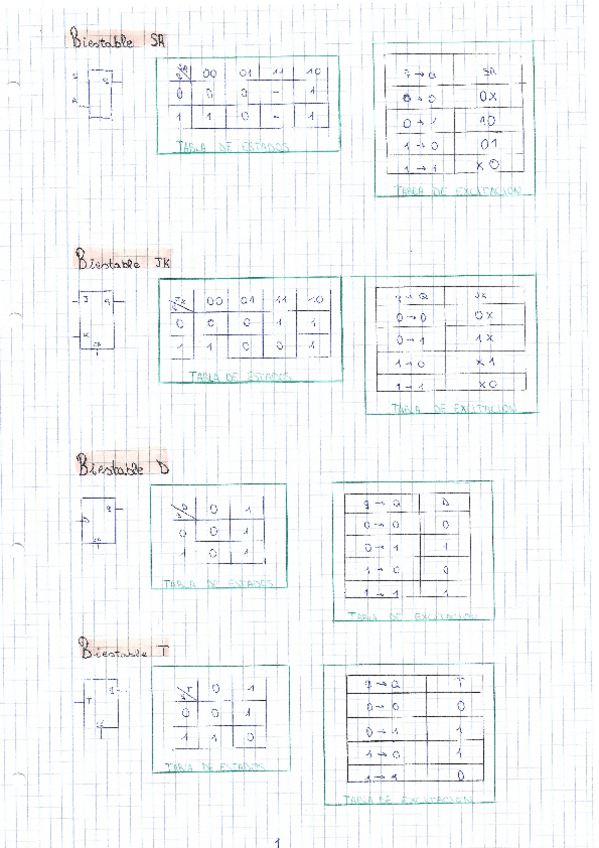 Biestable SR
S Q
R
SR 00 01 11 10
0 0 0 - 1
1 1 0 - 1
TABLA DE ESTADOS
q→Q SR
0→0 0X
0→1 10
1→0 01
1→1 X0
TABLA DE EXCITACION
Biestable JK
J Q
K
JK 00 01 11 10
0 0 0 1 1
1 1 0 0 1
TABLA DE ESTADOS
q→Q JK
0→0 0X
0→1 1X
1→0 X1
1→1 X0
TABLA DE EXCITACION
Biestable D
D
D 0 1
0 0 1
1 0 1
TABLA DE ESTADOS
q→Q D
0→0 0
0→1 1
1→0 0
1→1 1
TABLA DE EXCITACION
Biestable T
T
T 0 1
0 0 1
1 1 0
TABLA DE ESTADOS
q→Q T
0→0 0
0→1 1
1→0 1
1→1 0
TABLA DE EXCITACION
1